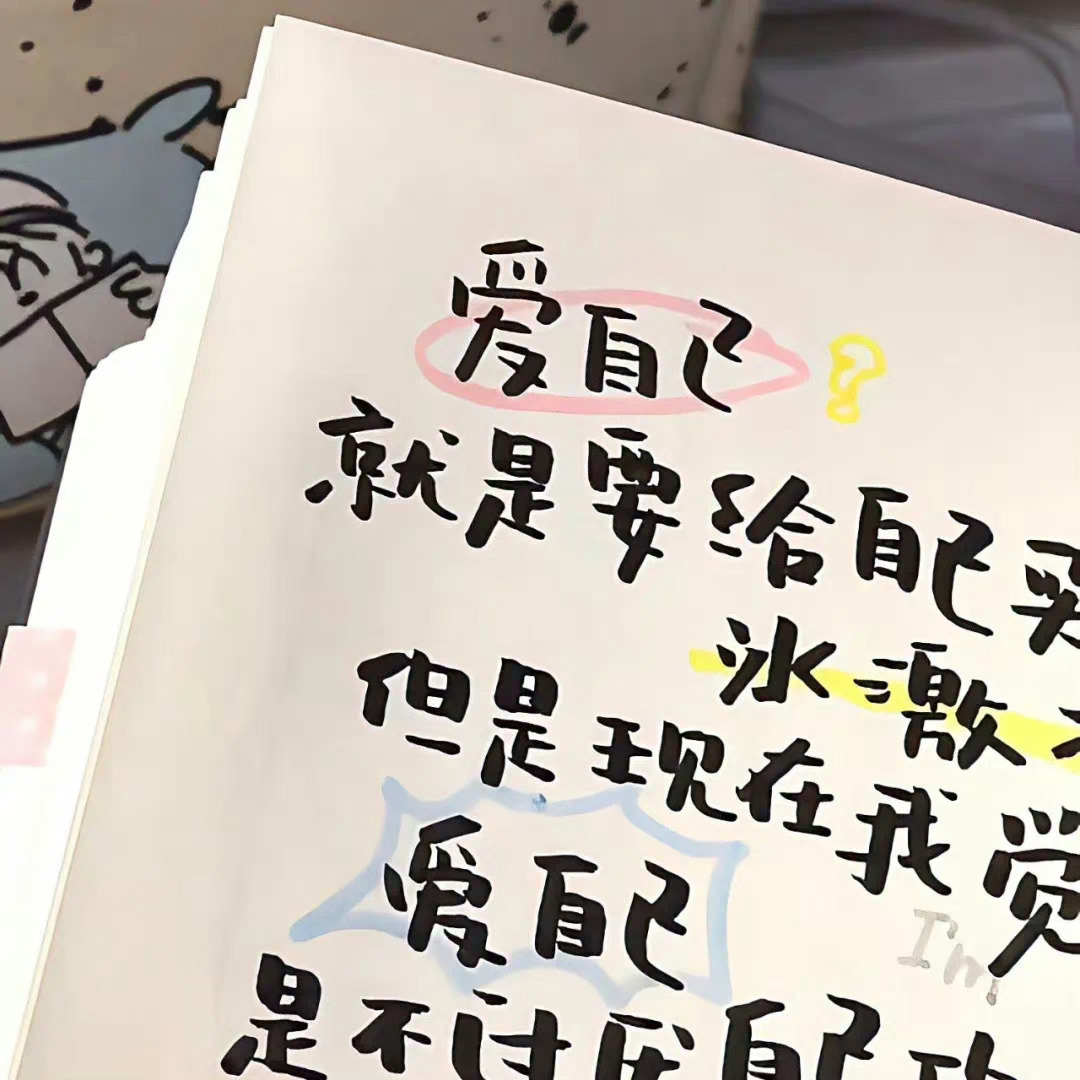 爱自己?
就是要给自己买
冰激
但是现在我觉
爱自己
I'm
是不讨厌自己